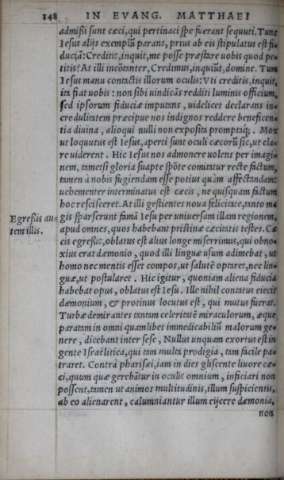 148 IN EVANG. MATTHAEI
admissi sunt cæci, qui pertinaci spe fuerant sequuti. Tunc
Iesus alijs exemplũ parans, prius ab eis stipulatus est fi⸗
duciã: Creditis, inquit, me posse præstare uobis quod pe⸗
titis? At illi incõtanter, Credimus, inquiũt, domine. Tum
Iesus manu contactis illorum oculis: Vti creditis, inquit,
ita fiat uobis: non sibi uindicãs redditi luminis officium,
sed ipsorum fiduciæ imputans, uidelicet declarans in⸗
credulitatem præcipue nos indignos reddere beneficen⸗
tia diuina, alioqui nulli non exposita promptáq;. Mox
ut loquutus est Iesus, aperti sunt oculi cæcorũ sic, ut cla⸗
re uiderent. Hic Iesus nos admonere uolens per imagi⸗
nem, tametsi gloria suapte spõte comitetur recte factum,
tamen à nobis fugiendam esse potius quàm affectandam:
uehementer interminatus est cæcis, ne quisquam factum
hoc resciscëret. At illi gestientes noua felicitate, tanto ma
gis sparserunt famã Iesu per uniuersam illam regionem,
apud omnes, quos habebant pristinæ cæcitatis testes. Cæ
cis egressis, oblatus est alius longe miserrimus, qui obno⸗
xius erat dæmonio, quod illi linguæ usum adimebat, ut
homo nec mentis esset compos, ut salutẽ optaret, nec lin⸗
guæ, ut postularet. Hic igitur, quoniam aliena fiducia
habebat opus, oblatus est Iesu. Ille nihil conatus eiecit
dæmonium, & protinus locutus est, qui mutus fuerat.
Turbæ demirantes tantam celeritatẽ miraculorum, æque
paratam in omni quamlibet immedicabiliũ malorum ge⸗
nere, dicebant inter sese, Nullus unquam exortus est in
gente Israëlitica, qui tam multa prodigia, tam facile pa⸗
traret. Contrà pharisæi, iam in dies gliscente liuore cæ⸗
ci, quum quæ gerebãtur in oculis omnium, inficiari non
possent, tamen ut animos multitudinis, illum suspicientis,
ab eo alienarent, calumniantur illum eijcere dæmonia,
non
Egressis au
tem illis.